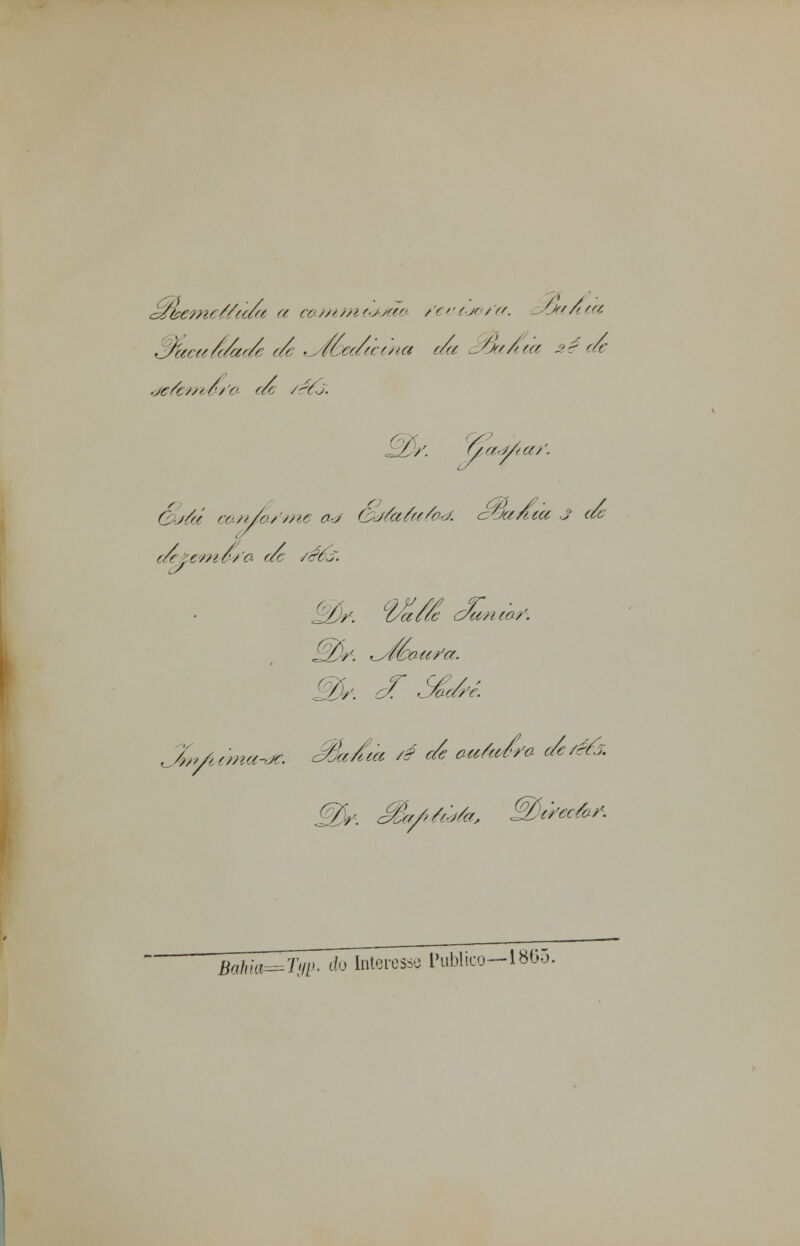 Remettida a commissão revisora. Bahia
Faculdade de Medicina da Bahia 28 de
setembro de 1865.
Dr. Gaspar.
Está conforme os Estatutos. Bahia 5 de
dezembro de 1865.
Dr. Valle Junior.
Dr. Moura.
Dr. J. Sodré.
Imprima-se. Bahia 18 de outubro de 1865.
Dr. Baptista, Director.
Bahia=Typ. do Interesse Publico—1865.